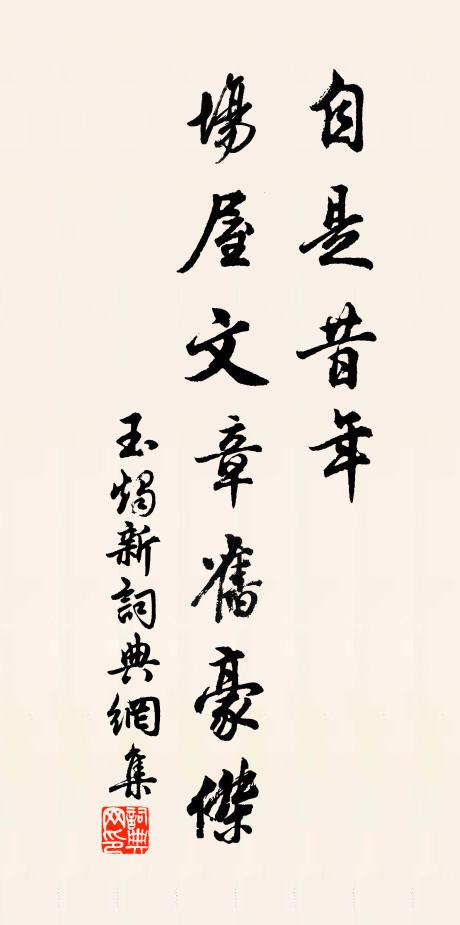 自是昔年
場屋文章舊豪傑
玉燭新詞典網集
詞典網印